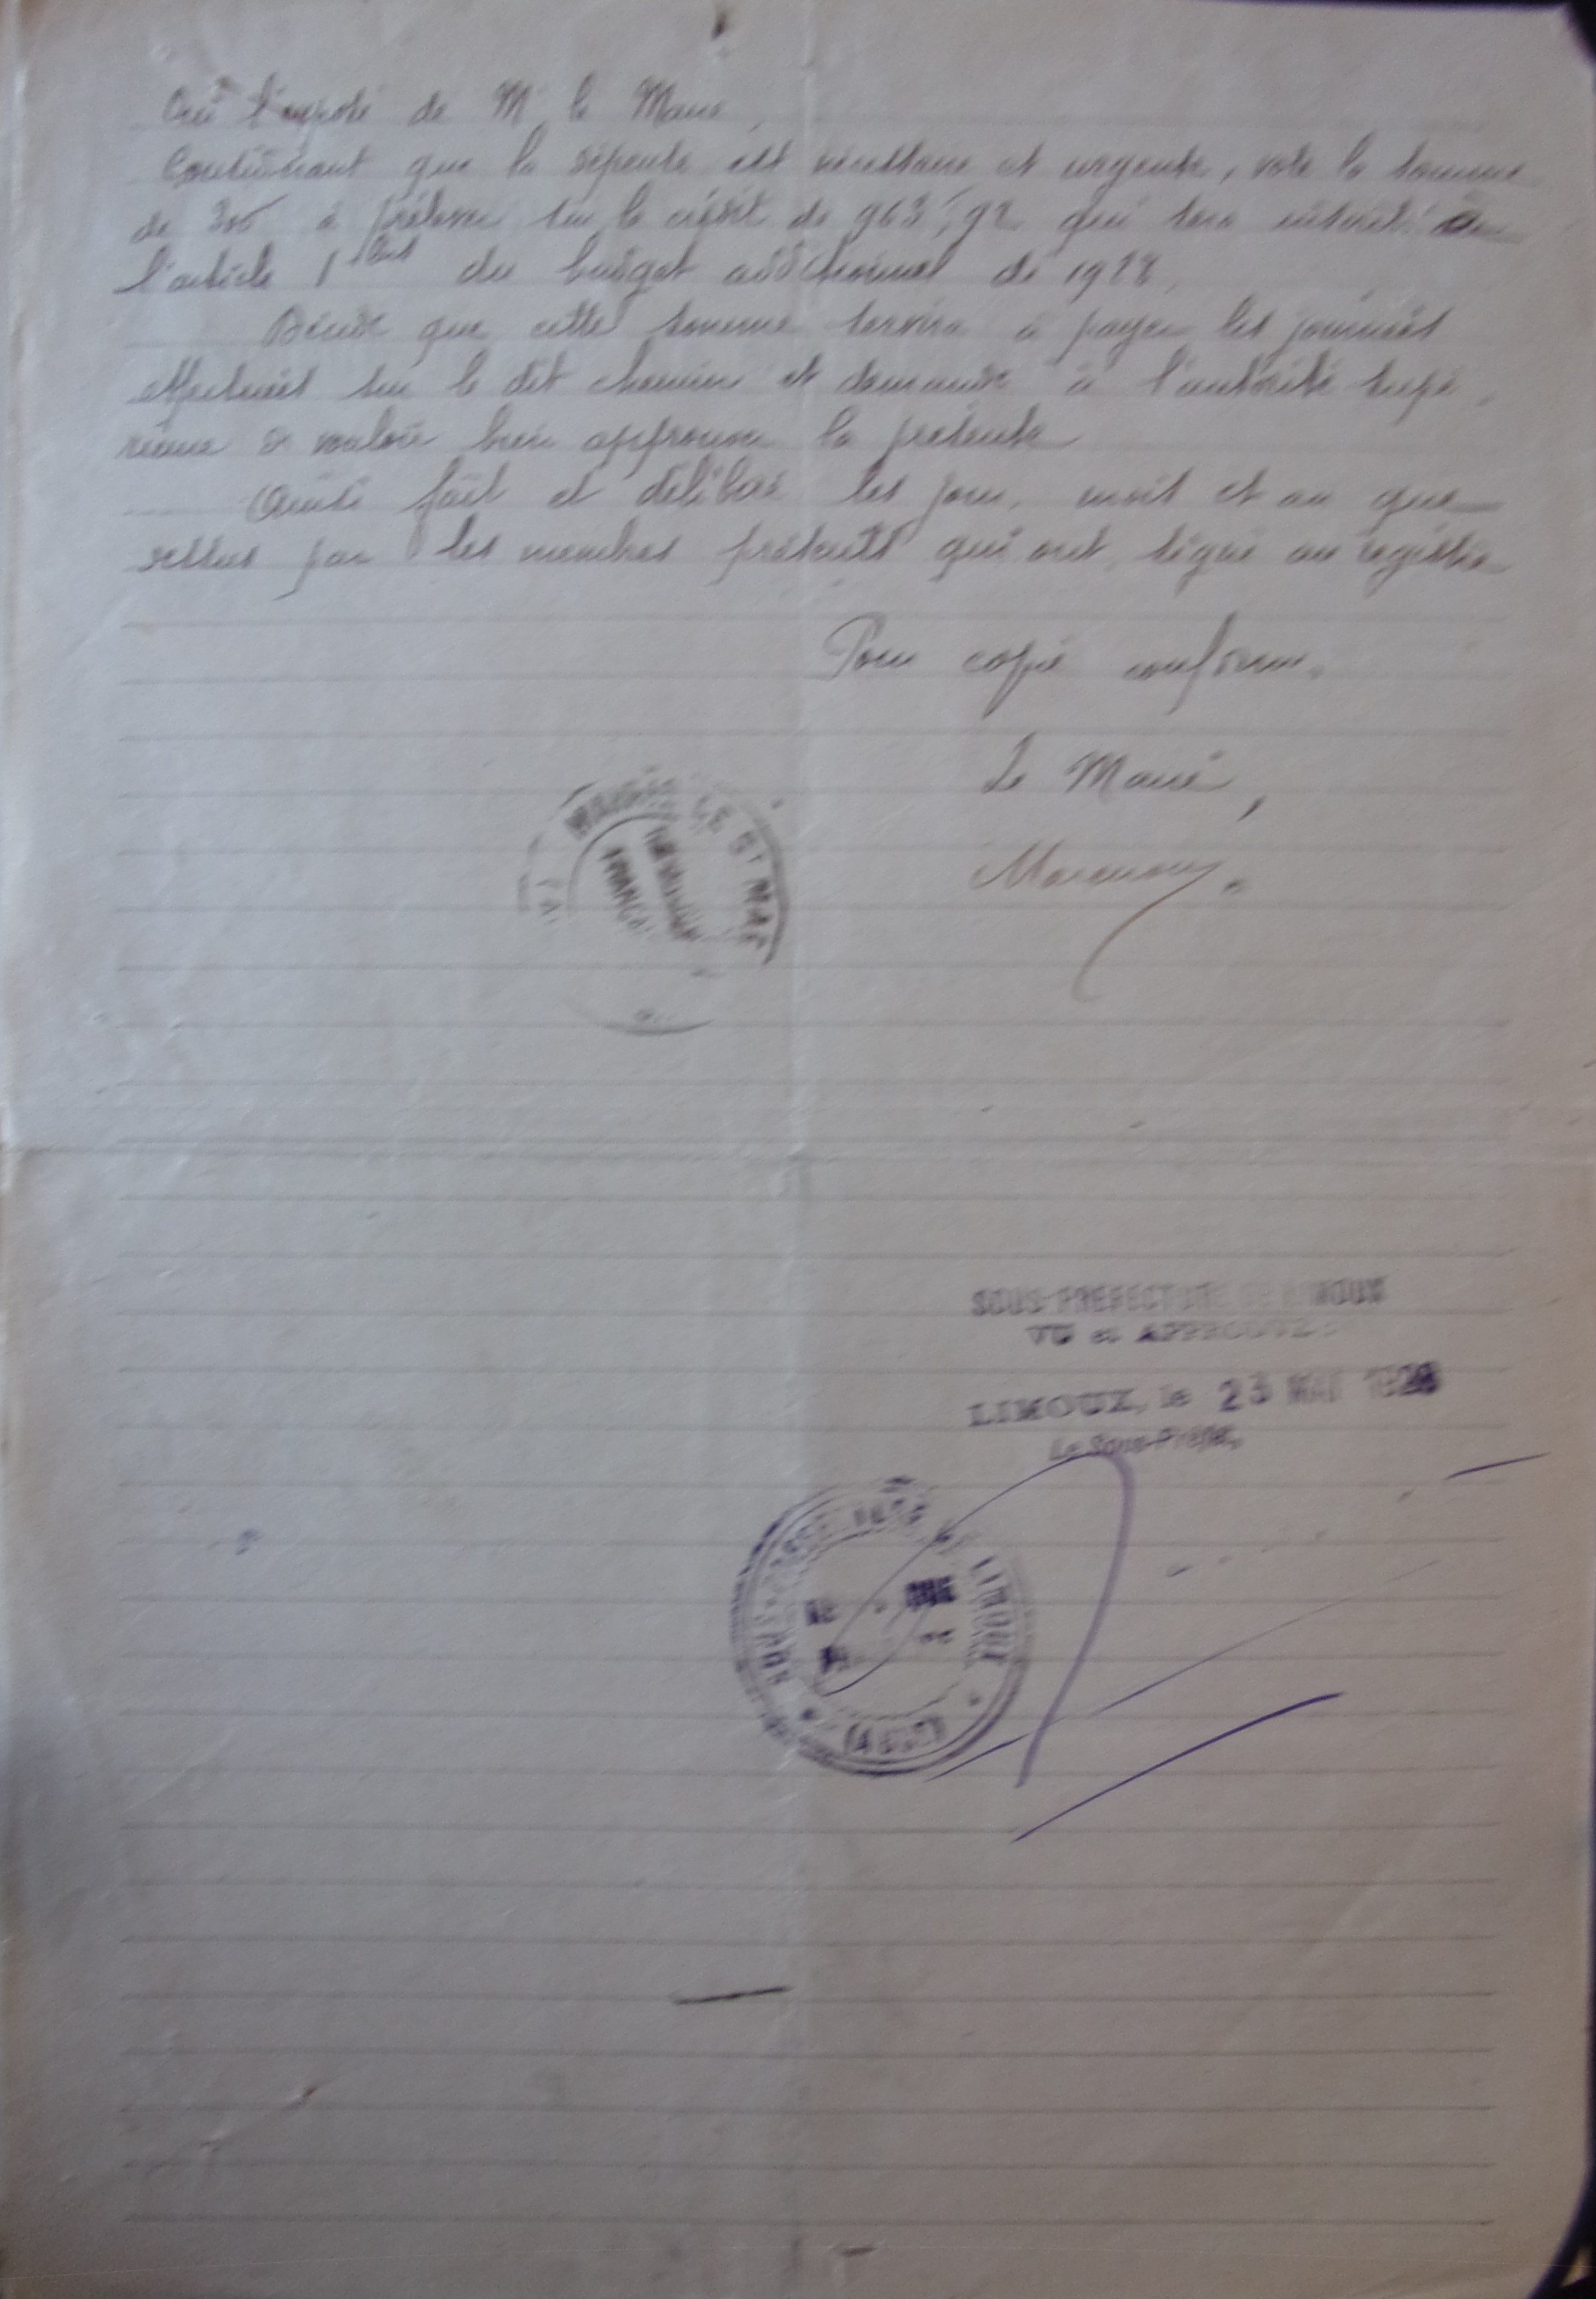 Ouï l'exposé de Mr le Maire,
Considérant que la dépense est nécessaire et urgente, vote la somme
de 300 à prélever sur le crédit de 963f,92 qui sera inscrit à
l'article 1er bis du budget additionnel de 1928,
Décide que cette somme servira à payer les journées
effectuées sur le dit chemin et demande à l'autorité supé-
rieure de vouloir bien approuver la présente
Ainsi fait et délibéré les jour, mois et an que
dessus par les membres présents qui ont signé au registre
Pour copie conforme.
Le Maire,
MAIRIE DE ST
SOUS-PREFECTURE DE LIMOUX
VU et APPROUVÉ
LIMOUX, le 23 MAI 1928
Le Sous-Préfet,
SOUS-PREFECTURE DE LIMOUX
(AUDE)